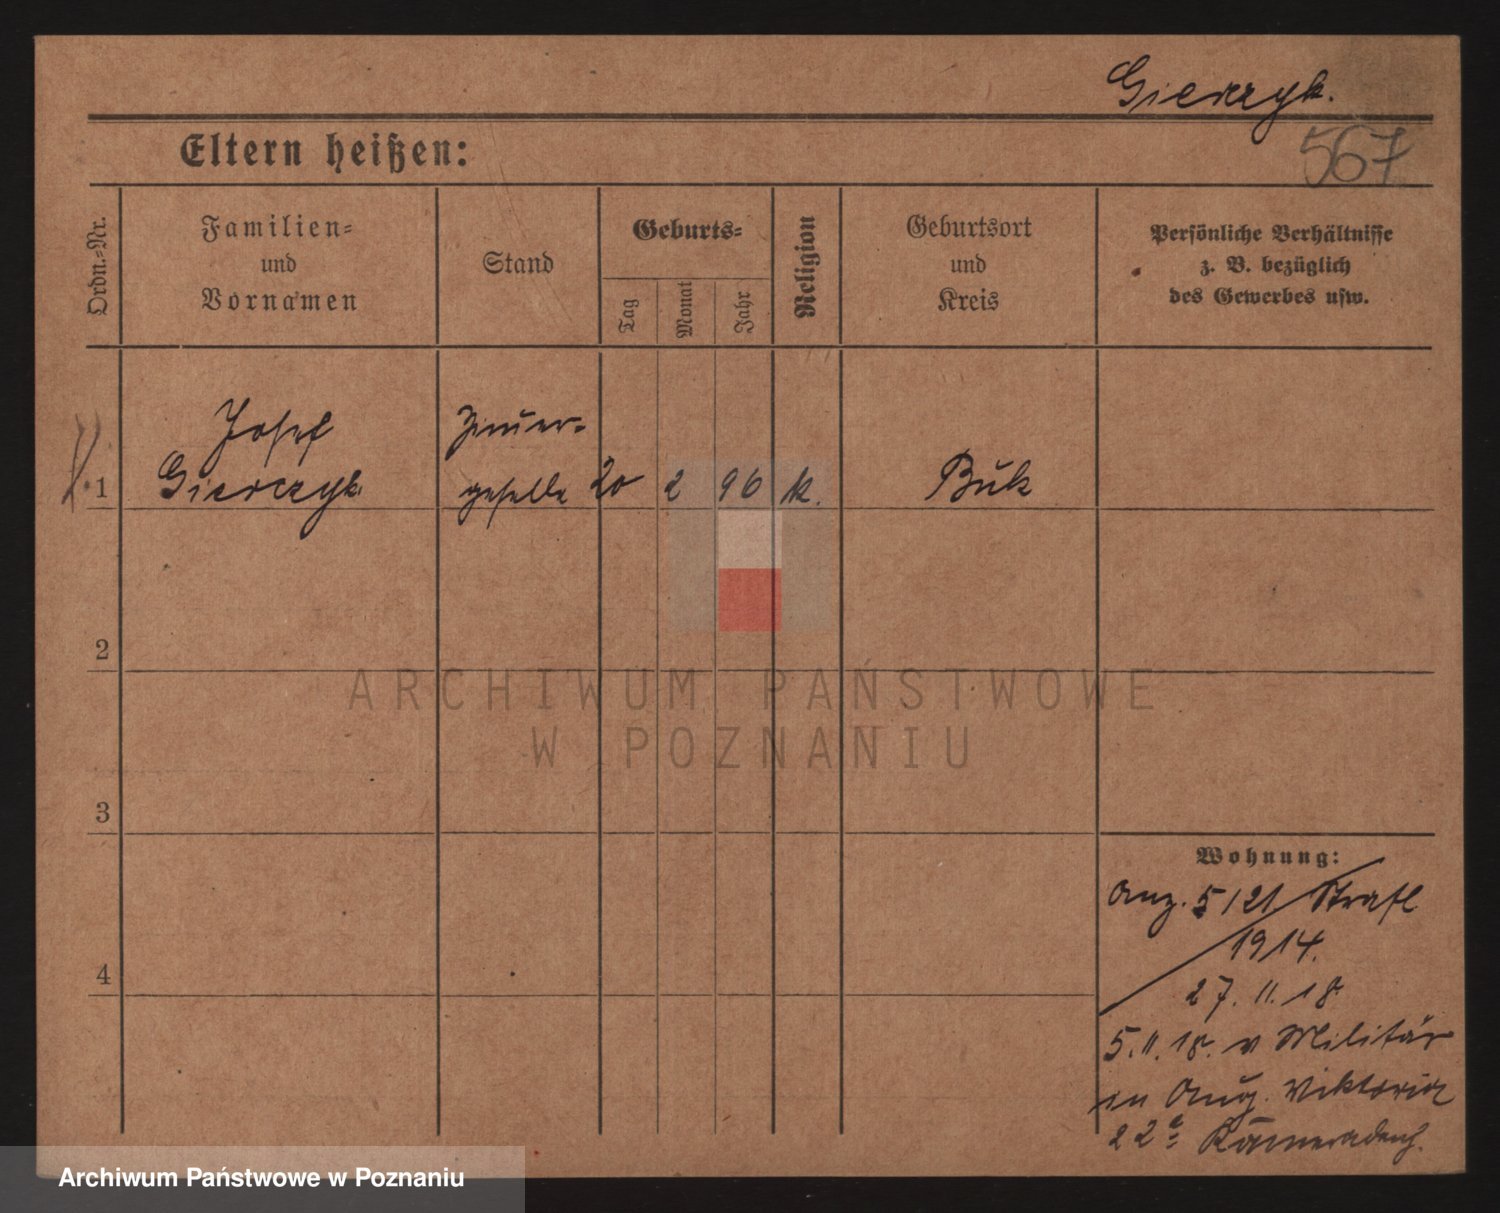 Gierczyk.
567
Eltern heißen:
Ordn.-Nr.
Familien-
und
Vornamen
Stand
Geburts-
Tag
Monat
Jahr
Religion
Geburtsort
und
Kreis
Persönliche Verhältnisse
z. B. bezüglich
des Gewerbes usw.
Josef
Gierczyk
geselle
1
20 2 96 k.
Buk
2
ARCHIWUM PAŃSTWOWE
W POZNANIU
3
Wohnung:
5/21
1914.
27. 11. 18
5. 11. 18. v Militär
in Aug. Viktoria
22
4
Archiwum Państwowe w Poznaniu